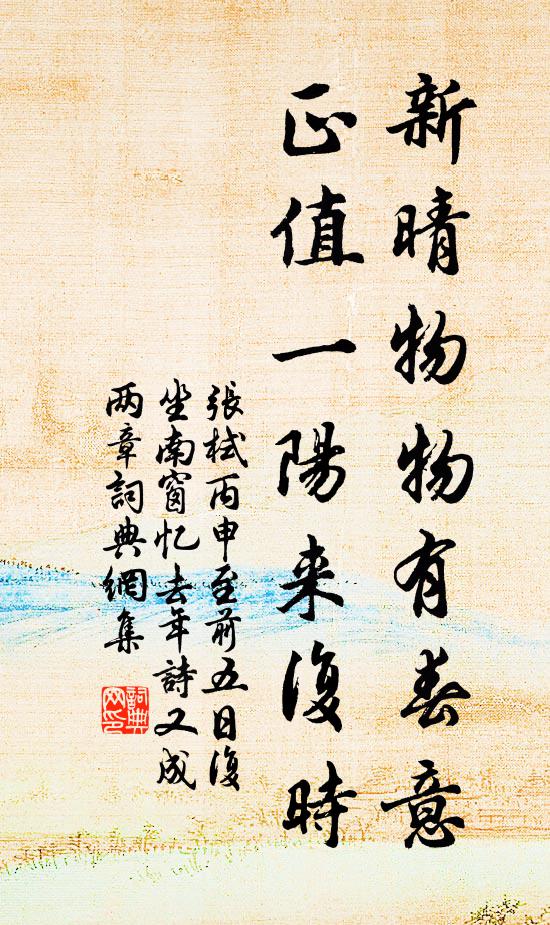 新晴物物有春意
正值一陽来復時
張栻丙申至前五日復
坐南窗忆去年詩又成
两章詞典網集
詞典网印